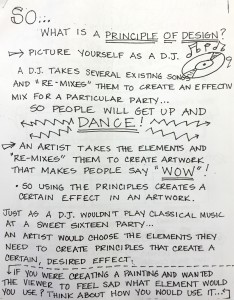 SO...
WHAT IS A PRINCIPLE OF DESIGN?
PICTURE YOURSELF AS A D.J.
A D.J. TAKES SEVERAL EXISTING SONGS
AND "RE-MIXES" THEM TO CREATE AN EFFECTIV
MIX FOR A PARTICULAR PARTY...
SO PEOPLE WILL GET UP AND
DANCE!
AN ARTIST TAKES THE ELEMENTS AND
"RE-MIXES" THEM TO CREATE ARTWORK
THAT MAKES PEOPLE SAY "WOW"!
• SO USING THE PRINCIPLES CREATES A
CERTAIN EFFECT IN AN ARTWORK.
JUST AS A D.J. WOULDN'T PLAY CLASSICAL MUSIC
AT A SWEET SIXTEEN PARTY...
AN ARTIST WOULD CHOOSE THE ELEMENTS THEY
NEED TO CREATE PRINCIPLES THAT CREATE A
CERTAIN, DESIRED EFFECT.
IF YOU WERE CREATING A PAINTING AND WANTED
THE VIEWER TO FEEL SAD WHAT ELEMENT WOULD
YOU USE? THINK ABOUT HOW YOU WOULD USE IT...